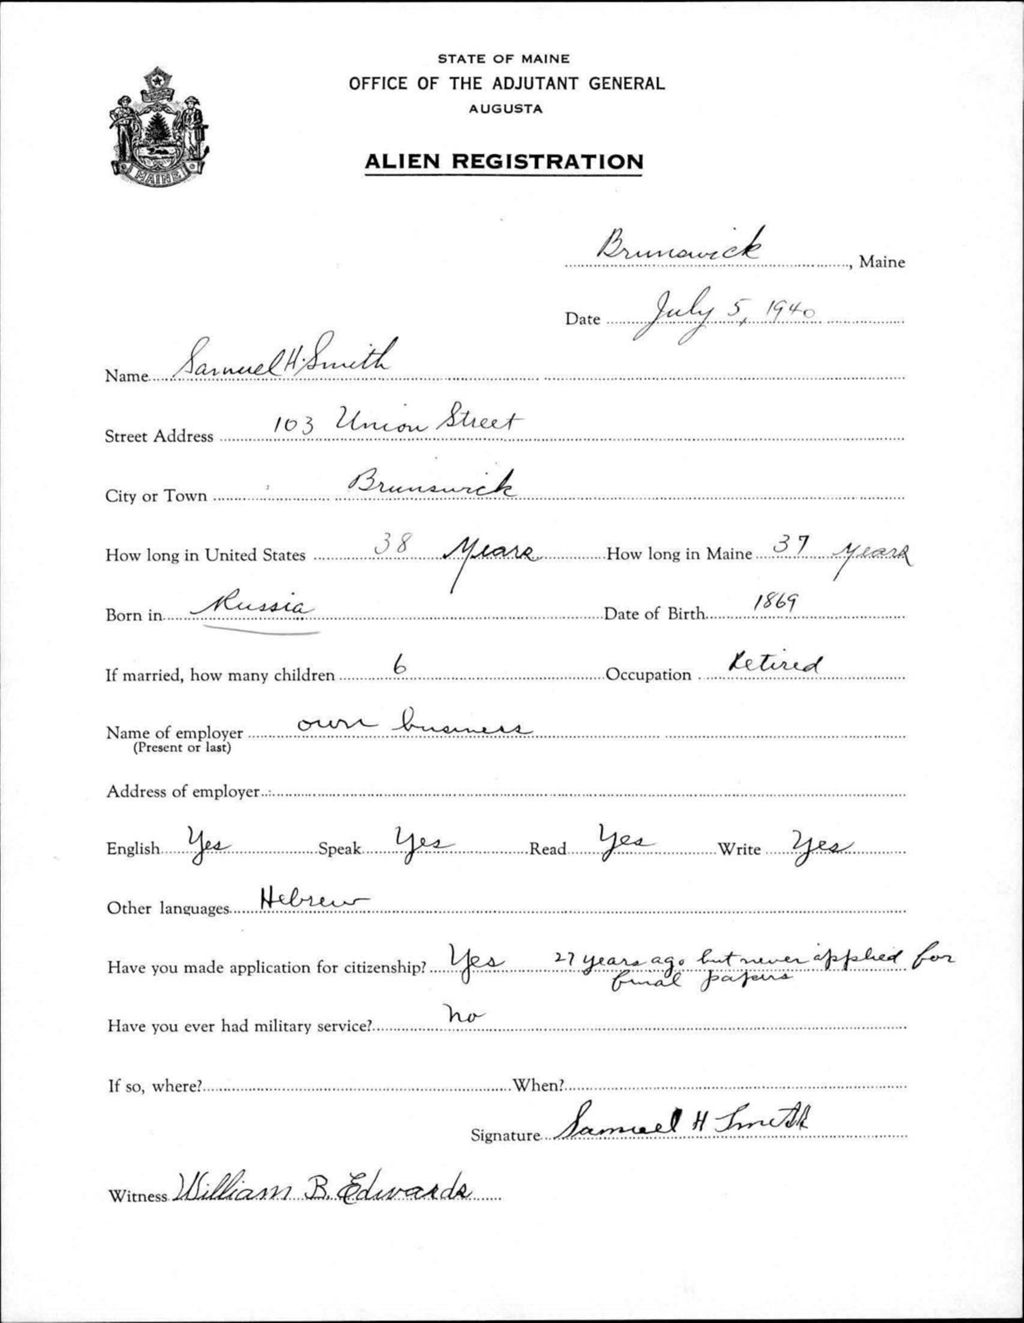 STATE OF MAINE
OFFICE OF THE ADJUTANT GENERAL
AUGUSTA
ALIEN REGISTRATION
MAINE
Brunswick, Maine
Date July 5, 1940
Name Samuel H. Smith
Street Address 103 Union Street
City or Town Brunswick
How long in United States 38 Years How long in Maine 37 years
Born in Russia Date of Birth 1869
If married, how many children 6 Occupation Retired
Name of employer own business
(Present or last)
Address of employer
English Yes Speak Yes Read Yes Write Yes
Other languages Hebrew
Have you made application for citizenship? Yes 27 years ago but never applied for
final papers
Have you ever had military service? no
If so, where? When?
Signature Samuel H Smith
Witness William B. Edwards